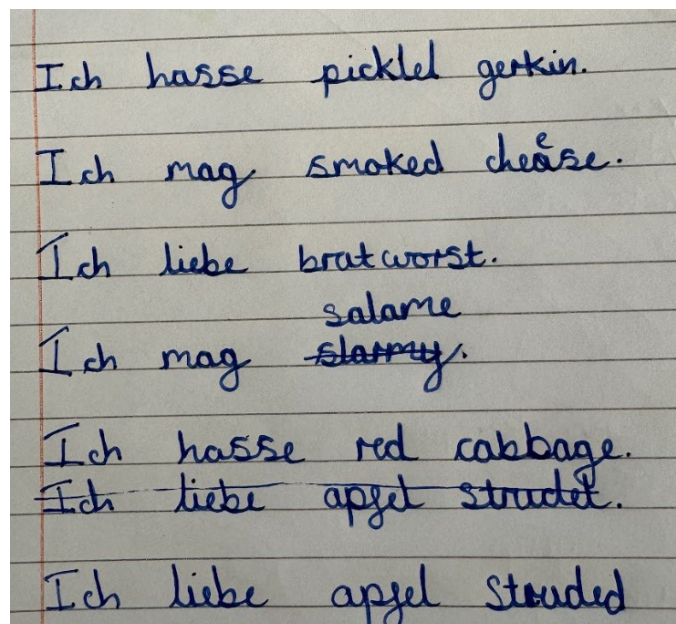 Ich hasse picklel gerkin.
Ich mag smoked cheese.
Ich liebe bratworst.
salame
Ich mag slarmy.
Ich hasse red cabbage.
Ich liebe apfel strudel.
Ich liebe apfel struded